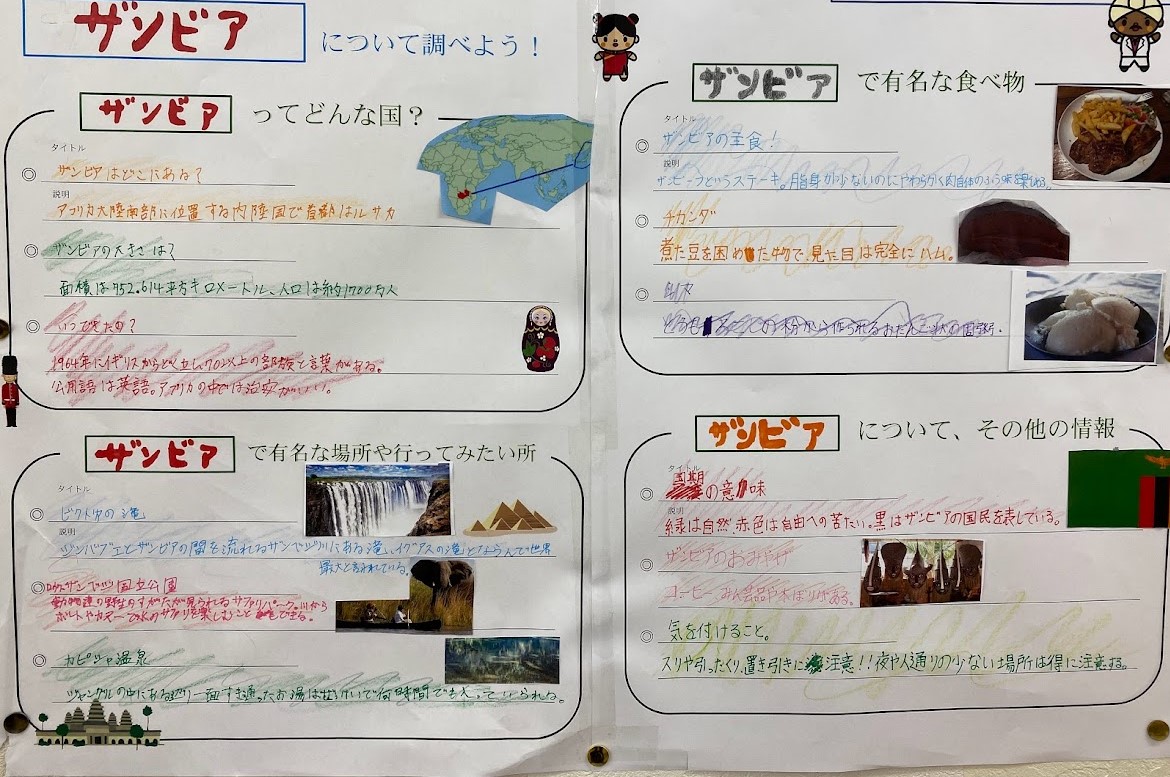 ザンビア について調べよう！
ザンビア ってどんな国？
タイトル
ザンビアはどこにある？
説明
アフリカ大陸南部に位置する内陸国で首都はルサカ
ザンビアの大きさは？
面積は752.614平方キロメートル、人口は約1700万人
いつできたの？
1964年にイギリスからどく立し、70以上の部族と言葉がある。
公用語は英語。アフリカの中では治安がいい。
ザンビア で有名な場所や行ってみたい所
タイトル
ビクトリアの滝
説明
ジンバブエとザンビアの間を流れるザンベジ川にある滝、イグアスの滝とならんで世界
最大と言われている。
国立公園
動物達の野生のすがたが見られるサファリパーク。川から
ボートやカヌーで水のサファリを楽しむこと できる。
カピシャ温泉
ジャングルの中にある すき通ったお湯は 何時間でも入っていられる。
ザンビア で有名な食べ物
タイトル
ザンビアの主食！
説明
ザンビーフというステーキ。脂身が少ないのにやわらかく肉自体のうま味を楽しめる。
チカンダ
煮た豆を固めた物で、見た目は完全にハム。
の粉から作られるおだんご状の
ザンビア について、その他の情報
タイトル
国旗の意味
説明
緑は自然、赤色は自由への苦たい。黒はザンビアの国民を表している。
ザンビアのおみやげ
コーヒー、みん芸品や木ぼりがある。
気を付けること。
スリや引ったくり、置き引きに注意！！夜や人通りの少ない場所は得に注意する。